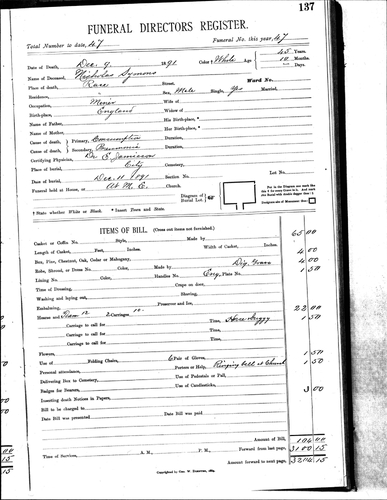 137
FUNERAL DIRECTORS REGISTER.
Total Number to date, 47 Funeral No. this year, 47
Date of Death, Dec 9 1891 Color † White Age 45 Years
10 Months
Days
Name of Deceased, Nicholas Symons
Residence, Race Street. Ward No.
Occupation, Miner Sex, Male Single, Yes Married,
Birthplace, England Wife of
Widow of
Name of Father, His Birth-place, *
Name of Mother, Her Birth-place, *
Cause of death, Primary, Consumption Duration,
Cause of death, Secondary, Pneumonia Duration,
Certifying Physician, Dr C. Jameson
Place of burial, City Cemetery,
Date of burial, Dec 11 1891 Section No. Lot No.
Funeral held at House, or At M. E. Church,
Diagram of Burial Lot
† State whether White or Black. * Insert Town and State.
ITEMS OF BILL. (Cross out items not furnished.)
Casket or Coffin No. Style, Made by 65 00
Length of Casket, Feet, Inches. Width of Casket, Inches.
Box, Pine, Chestnut, Oak, Cedar or Mahogany, 4 00
Robe, Shroud, or Dress No. Color, Made by Dig Grave 4 00
Lining No. Color, Handles No. Eng Plate No. 1 50
Time of Dressing, Crape on door,
Washing and laying out, Shaving,
Embalming, Preserver and Ice,
Hearse and Team 12 2 Carriages 10- 22 00
Carriage to call for Time, Hare buggy 1 50
Carriage to call for Time,
Carriage to call for Time,
Flowers,
Use of Folding Chairs, 6 Pair of Gloves, 1 50
Personal attendance, Porters or Help, Ringing bell at Church 1 50
Delivering Box to Cemetery, Use of Pedestals or Pall,
Badges for Bearers, Use of Candlesticks, 3 00
Inserting death Notices in Papers,
Bill to be charged to
Date Bill was presented Date Bill was paid
Amount of Bill, 104 00
Time of Services, A. M., P. M., Forward from last page, 3100 15
Amount forward to next page, 3204 15